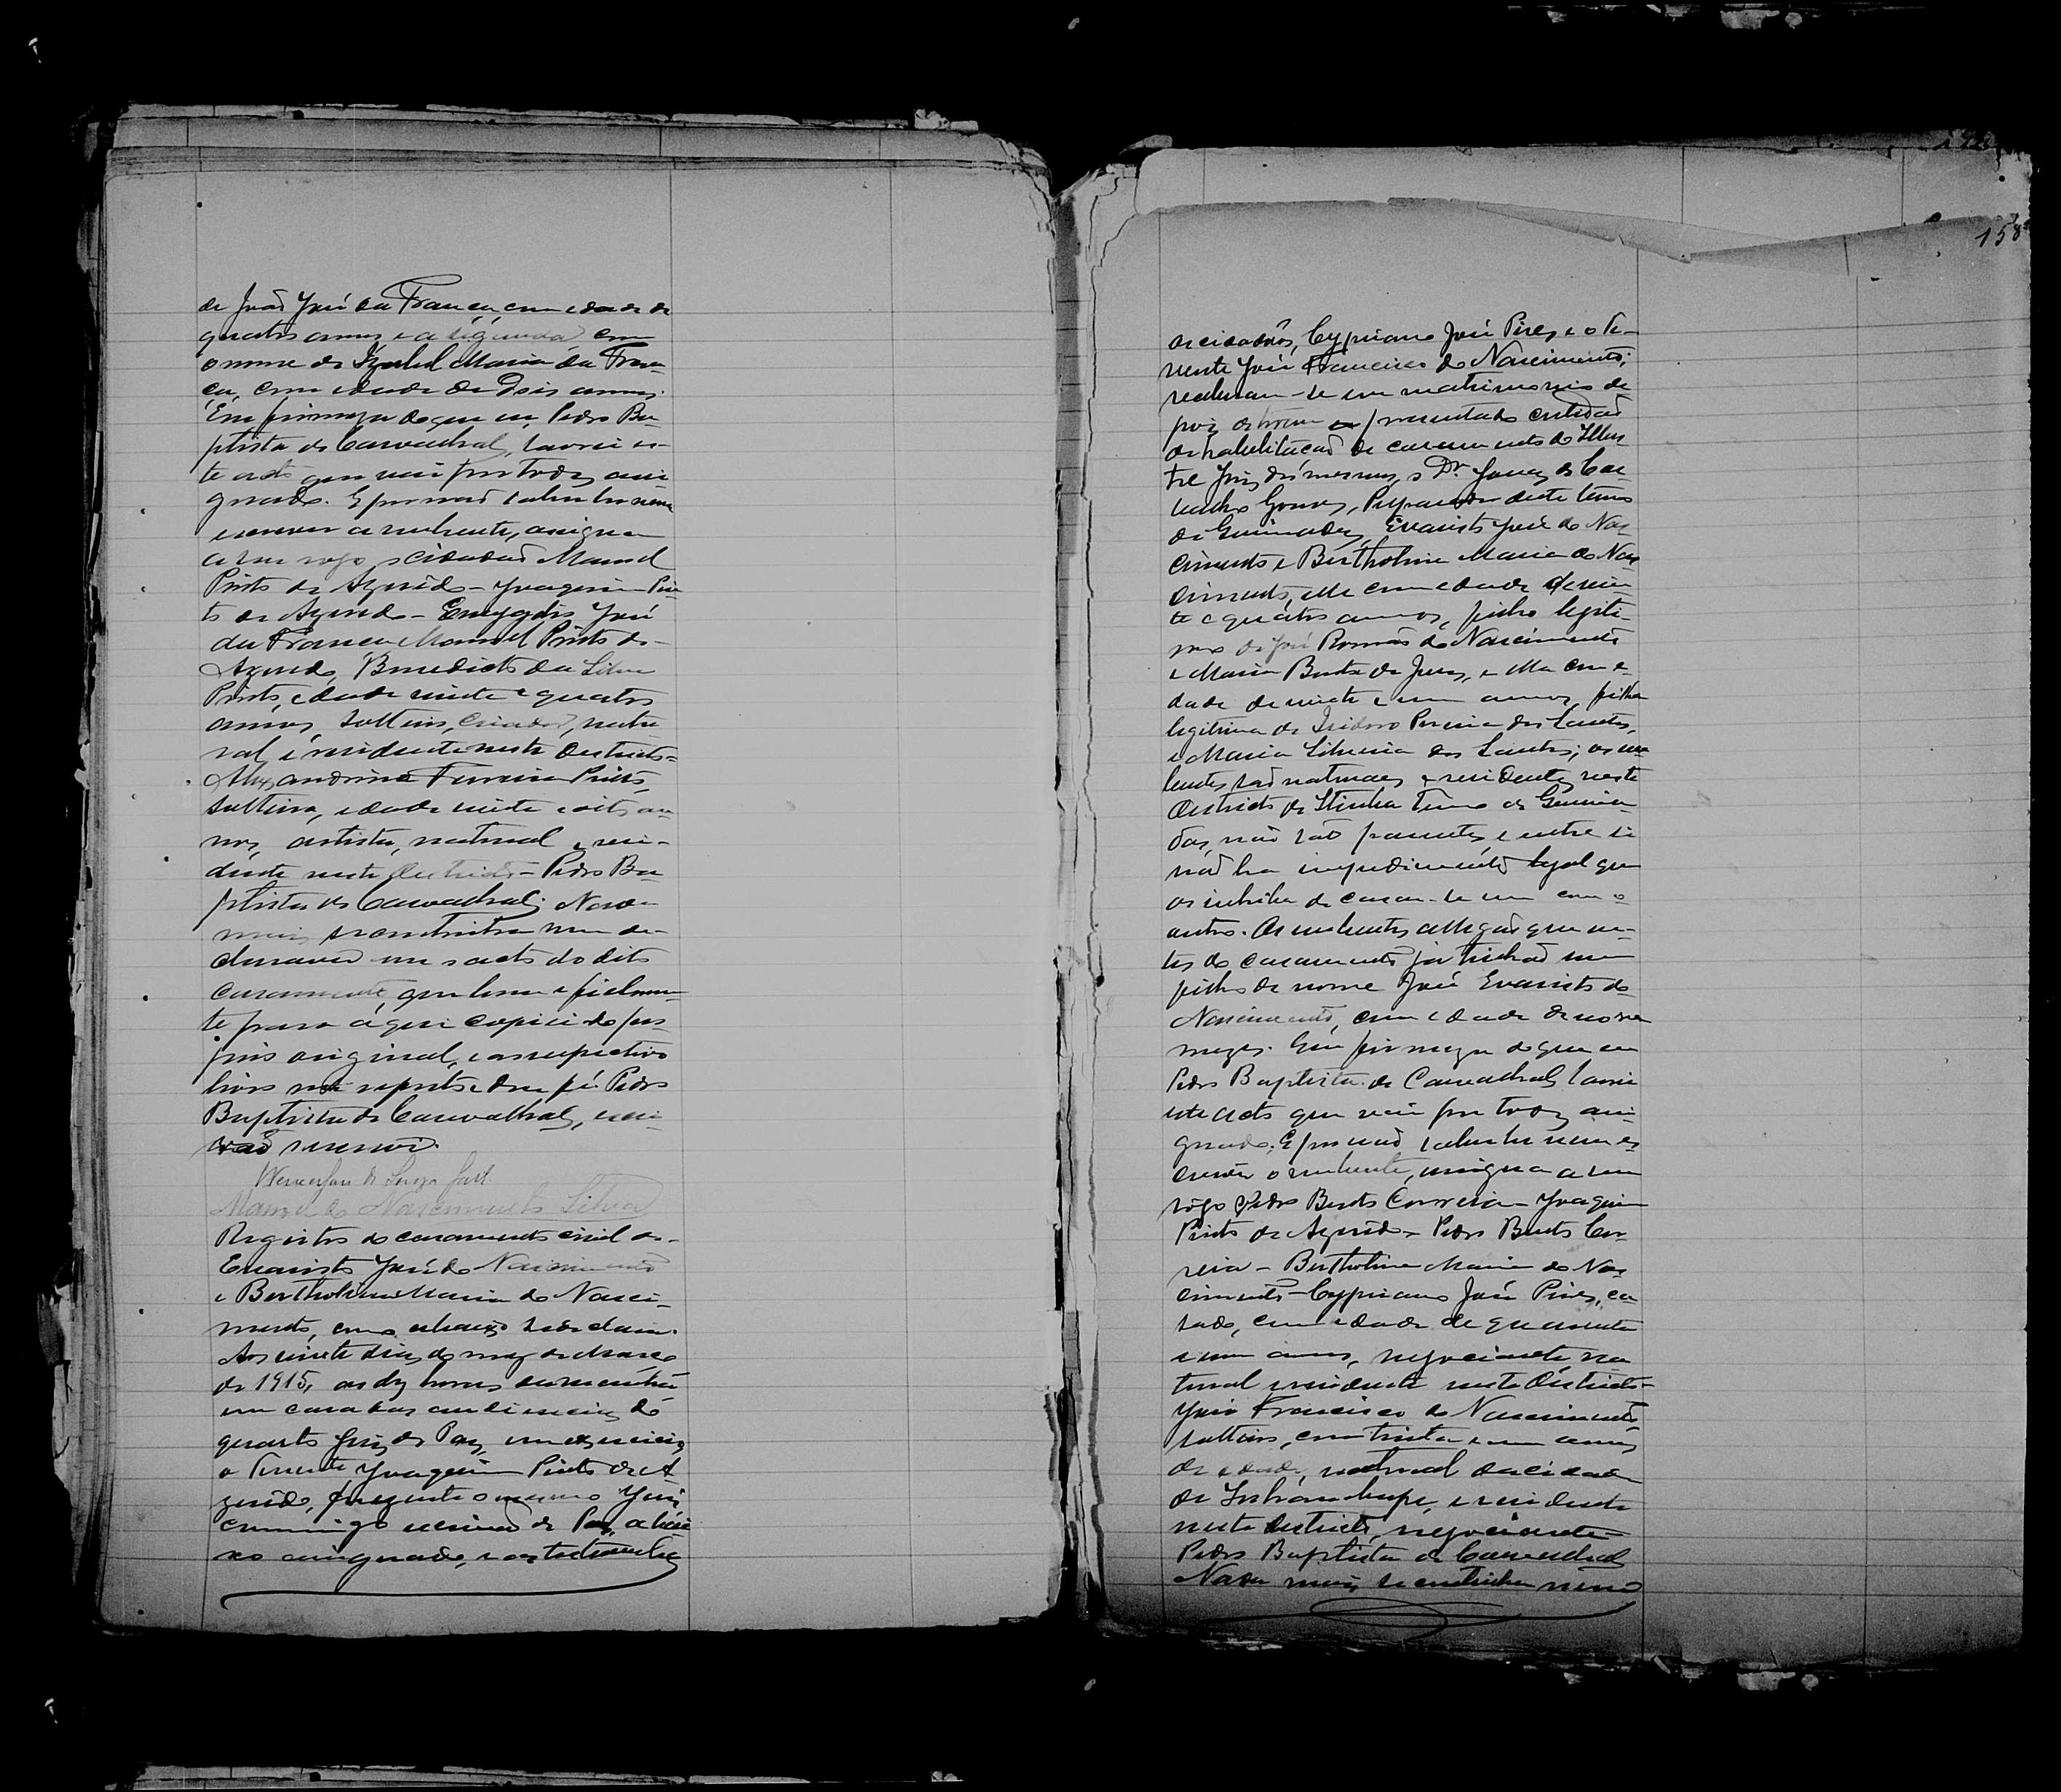 de João José da Franca, com edade de
quatro annos, e a segunda, com
o nome de Izabel Maria da Fran-
ca, com edade de dois annos.
Em firmeza do que eu, Pedro Ba-
ptista de Carvalhal, lavrei es-
te acto que vai por todos assi-
gnado. E por não saber ler nem
escrever a nubente, assigna
a seu rogo o cidadão Manoel
Pinto de Azevêdo - Joaquim Pin-
to de Azevedo - Emygdio José
da Franca - Manoel Pinto de
Azevedo, Benedicto da Silva
Pinto, edade vinte e quatro
annos, solteiro, creador, natu-
ral e residente neste Destricto =
Alexandrino Ferreira Pinto,
solteiro, edade vinte e oito an-
nos, artista, natural e resi-
dente neste Destricto - Pedro Ba-
ptista de Carvalhal. Nada
mais se continha nem de-
clarava em o acto do dito
casamento, que bem e fielmen-
te para aqui copiei do pro-
prio original, e ao respectivo
livro me reporto e dou fé. Pedro
Baptista de Carvalhal, escri-
vão escrevi.
de Souza
Manoel do Nascimento Silva
Registro do casamento civil de
Evaristo José do Nascimento
e Bertholina Maria do Nasci-
mento, como abaixo se declara.
Aos vinte dias do mez de Março
de 1915, as dez horas da manhã
em casa das audiencias do
quarto Juiz de Paz, em exercicio
o Tenente Joaquim Pinto de A-
zevêdo, presente o mesmo Juiz
commigo escrivão de Paz, abai-
xo assignado, e as testemunhas
158
os cidadãos, Cypriano José Pires, e o Te-
nente José Francisco do Nascimento;
receberam-se em matrimonio de
pois de terem apresentado certidão
de habilitação de casamento do Illus
tre Juiz dos mesmos, o Dr.
Preparador deste termo
de Evaristo José do Nas
cimento e Bertholina Maria do Nas
cimento, elle com edade de vin-
te e quatro annos, filho legiti-
mo de José Romão do Nascimento
e Maria Benta de Jesus, e ella com e-
dade de vinte e um annos, filha
legitima de Isidoro Pereira dos Santos,
e Maria Silveria dos Santos; os nu
bentes são naturaes e residentes neste
Destricto de Termo de
não são parentes, e entre si
não ha impedimento legal que
os inhiba de casar-se um com o
outro. Os nubentes allegão que an-
tes do casamento já tinhão um
filho de nome José Evaristo do
Nascimento, com edade de nove
mezes. Em firmeza do que eu
Pedro Baptista de Carvalhal lavrei
este acto que vai por todos assi-
gnado; E por não saber ler nem es-
crever o nubente, assigna a seu
rogo Pedro Bento Correia - Joaquim
Pinto de Azevêdo - Pedro Bento Cor-
reia - Bertholina Maria do Nas
cimento - Cypriano José Pires, ca-
sado, com edade de quarenta
e um annos, negociante, na
tural e residente neste Destricto -
José Francisco do Nascimento
solteiro, com trinta e um annos
de edade, natural da cidade
de e residente
neste Destricto, negociante -
Pedro Baptista de Carvalhal
Nada mais se continha nem